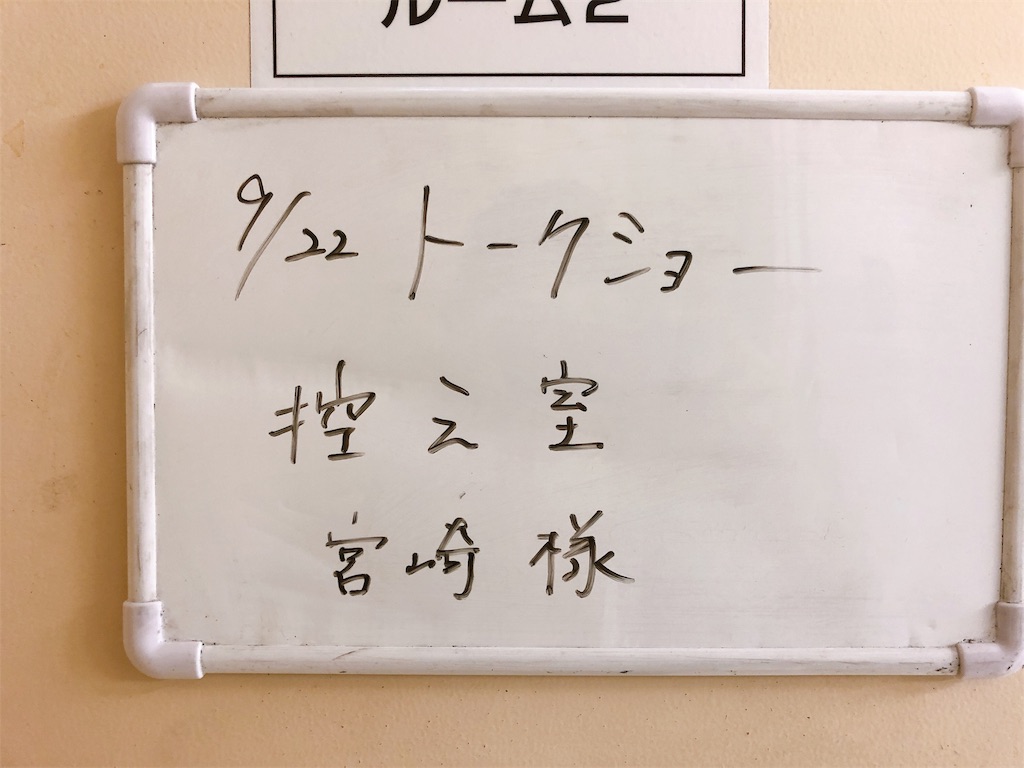 ルーム2
9/22 トークショー
控え室
宮崎様